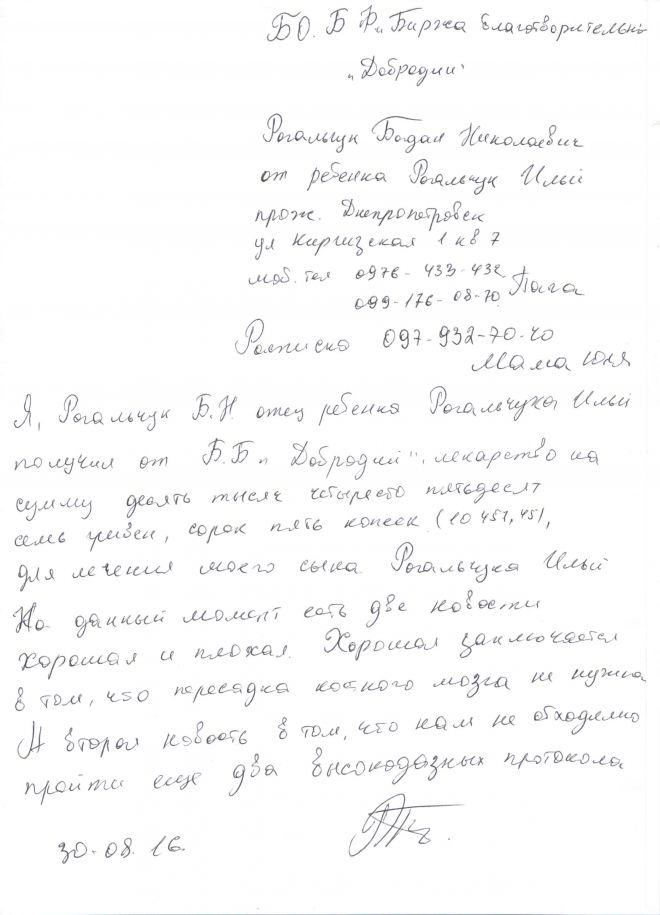 БО. БФ „Биржа Благотворительнь
„Добродии"
Рогальчук Богдан Николаевич
от ребенка Рогальчук Ильи
прож. Днепропетровск
ул Киргизская 1 кв 7
моб. тел 0976-433-432
099-176-08-70 Папа
Расписка 097-932-70-40
Мама Юля
Я, Рогальчук Б.Н. отец ребенка Рогальчука Ильи
получил от Б.Б „Добродий", лекарство на
сумму десять тысяч четыресто пятьдесят
семь гривен, сорок пять копеек (10 457,45),
для лечения моего сына Рогальчука Ильи
На данный момент есть две новости
хорошая и плохая. Хорошая заключается
в том, что пересадка костного мозга не нужна
А вторая новость в том, что нам не обходимо
пройти еще два высокодозных протокола
30.08.16.